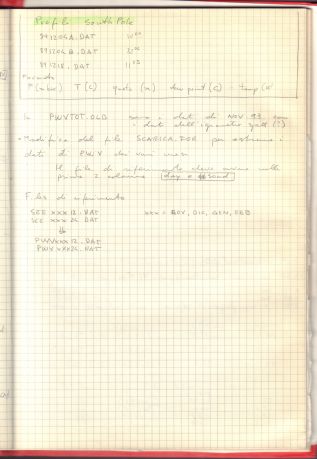 Profili South Pole
891204A.DAT
891204B.DAT
891218.DAT
Formato
P (mbar) T (C) quota (m) dew point (C)
In PWVTOT.OLD sono i dati di NOV 93 con
i dati dell'igrometro
- Modifica del file SCARICA.FOR per estrarre i
dati di PWV dei vari mesi
Il file di riferimento deve avere nelle
prime 2 colonne day e
Files di riferimento
SEE XXX12.DAT XXX = NOV, DIC, GEN, FEB
SEE XXX24.DAT
PWVXXX12.DAT
PWVXXX24.DAT